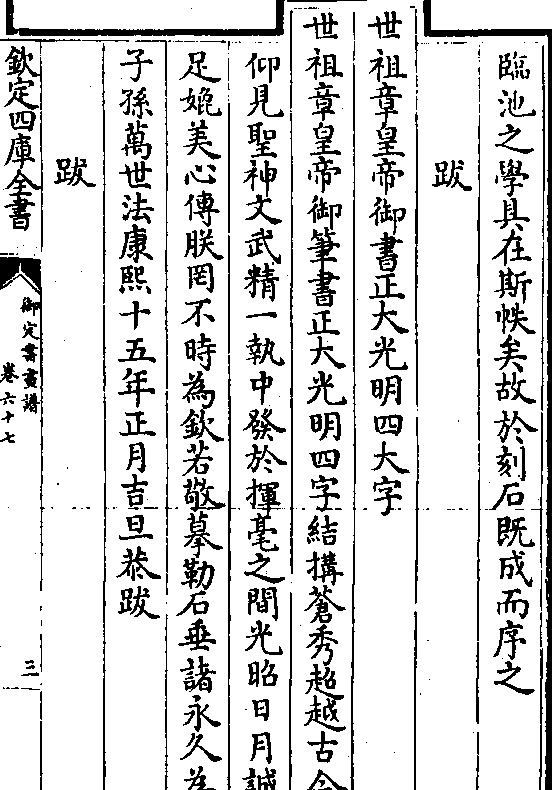 臨池之學具在斯帙矣故於刻石既成而序之
跋
世祖章皇帝御書正大光明四大字
世祖章皇帝御筆書正大光明四字結搆蒼秀超越古今
仰見聖神文武精一執中發於揮毫之間光昭日月誠
足媲美心傳朕罔不時為欽若敬摹勒石垂諸永久為
子孫萬世法康熙十五年正月吉旦恭跋
跋
欽定四庫全書
御定書畫譜
卷六十七
三